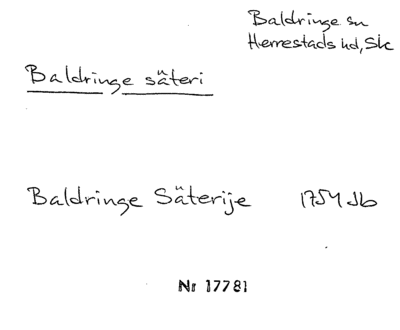 Baldringe sn
Herrestads hd, Sk
Baldringe säteri
Baldringe Säterije 1754 Jb
Nr 17781